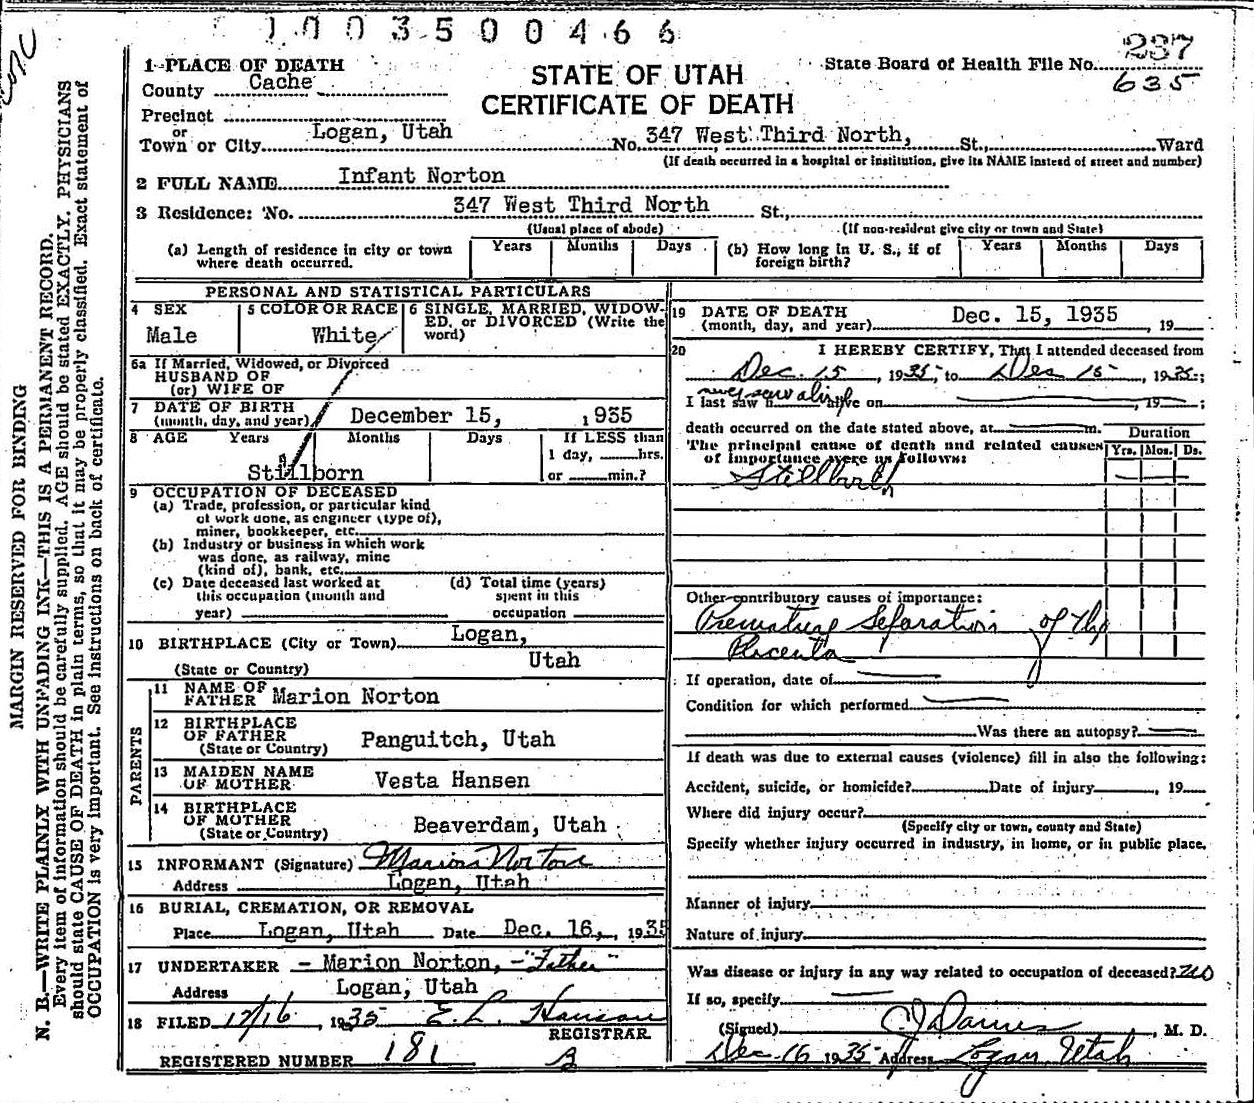 1003500466
237
1 PLACE OF DEATH
STATE OF UTAH
State Board of Health File No.
635
County Cache
CERTIFICATE OF DEATH
Precinct
or
Town or City Logan, Utah No. 347 West Third North, St., Ward
(If death occurred in a hospital or institution, give its NAME instead of street and number)
2 FULL NAME Infant Norton
3 Residence: No. 347 West Third North St.,
(Usual place of abode) (If non-resident give city or town and State)
(a) Length of residence in city or town where death occurred. Years Months Days (b) How long in U. S., if of foreign birth? Years Months Days
PERSONAL AND STATISTICAL PARTICULARS
4 SEX
Male
5 COLOR OR RACE
White
6 SINGLE, MARRIED, WIDOW-
ED, or DIVORCED (Write the
word)
6a If Married, Widowed, or Divorced
HUSBAND OF
(or) WIFE OF
7 DATE OF BIRTH
(month, day, and year) December 15, 1935
8 AGE Years Months Days If LESS than
1 day, hrs.
or min.?
Stillborn
9 OCCUPATION OF DECEASED
(a) Trade, profession, or particular kind
of work done, as engineer (type of),
miner, bookkeeper, etc.
(b) Industry or business in which work
was done, as railway, mine
(kind of), bank, etc.
(c) Date deceased last worked at
this occupation (month and
year)
(d) Total time (years)
spent in this
occupation
10 BIRTHPLACE (City or Town) Logan,
(State or Country) Utah
PARENTS
11 NAME OF
FATHER Marion Norton
12 BIRTHPLACE
OF FATHER
(State or Country) Panguitch, Utah
13 MAIDEN NAME
OF MOTHER Vesta Hansen
14 BIRTHPLACE
OF MOTHER
(State or Country) Beaverdam, Utah
15 INFORMANT (Signature) Marion Norton
Address Logan, Utah
16 BURIAL, CREMATION, OR REMOVAL
Place Logan, Utah Date Dec. 16, 1935
17 UNDERTAKER - Marion Norton, - "Father"
Address Logan, Utah
18 FILED 12/16, 1935 E. L. Hanson
REGISTRAR
REGISTERED NUMBER 181
19 DATE OF DEATH
(month, day, and year) Dec. 15, 1935, 19
20 I HEREBY CERTIFY, That I attended deceased from
Dec. 15, 1935, to Dec 15, 1935;
I last saw h alive on , 19 ;
never saw alive
death occurred on the date stated above, at m.
The principal cause of death and related causes
of importance were as follows:
Duration
Yrs. Mos. Ds.
Stillbirth
Other contributory causes of importance:
Premature Separation of the
Placenta
If operation, date of
Condition for which performed
Was there an autopsy?
If death was due to external causes (violence) fill in also the following:
Accident, suicide, or homicide? Date of injury , 19
Where did injury occur?
(Specify city or town, county and State)
Specify whether injury occurred in industry, in home, or in public place.
Manner of injury
Nature of injury
Was disease or injury in any way related to occupation of deceased? no
If so, specify
(Signed) , M. D.
Dec. 16 1935 Address Logan Utah
MARGIN RESERVED FOR BINDING
N. B.—WRITE PLAINLY WITH UNFADING INK—THIS IS A PERMANENT RECORD.
Every item of information should be carefully supplied. AGE should be stated EXACTLY. PHYSICIANS
should state CAUSE OF DEATH in plain terms, so that it may be properly classified. Exact statement of
OCCUPATION is very important. See instructions on back of certificate.